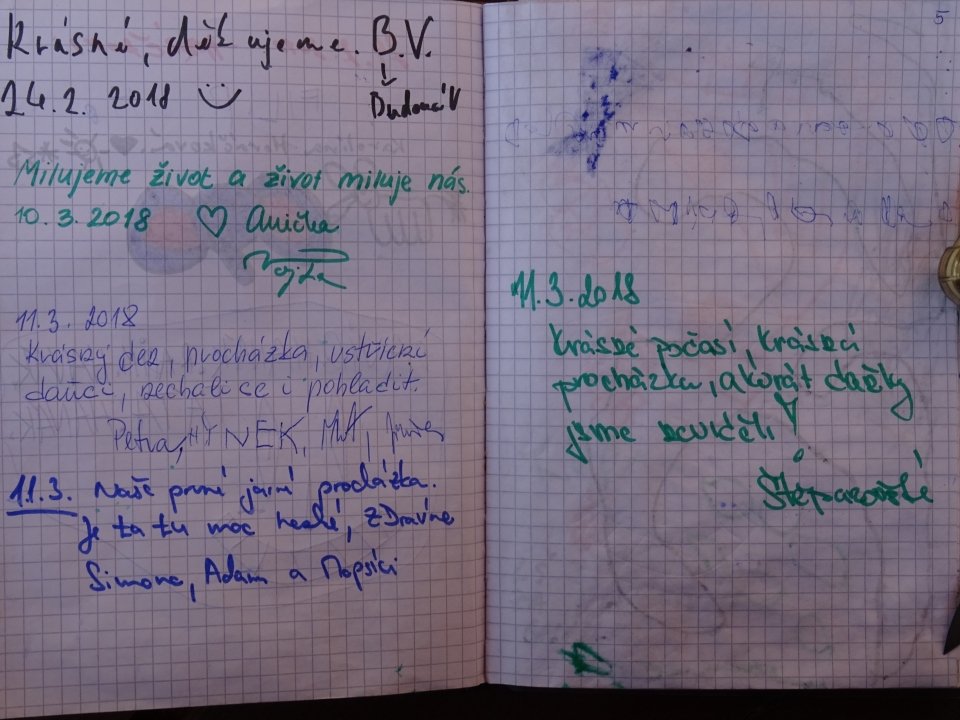 Krásné, děkujeme. B.V.
24.2. 2018
Milujeme život a život miluje nás.
10.3.2018 Anička
Vojta
11.3. 2018
Krásný den, procházka, vstřícní
daňci, nechali se i pohladit.
Petra, HYNEK,
11.3. Naše první jarní procházka.
Je to tu moc hezké, zDraví
Simona, Adam a Mopsíci
5
11.3.2018
Krásné počasí, krásná
procházka, akorát daňky
jsme neviděli!
Štěpánovské